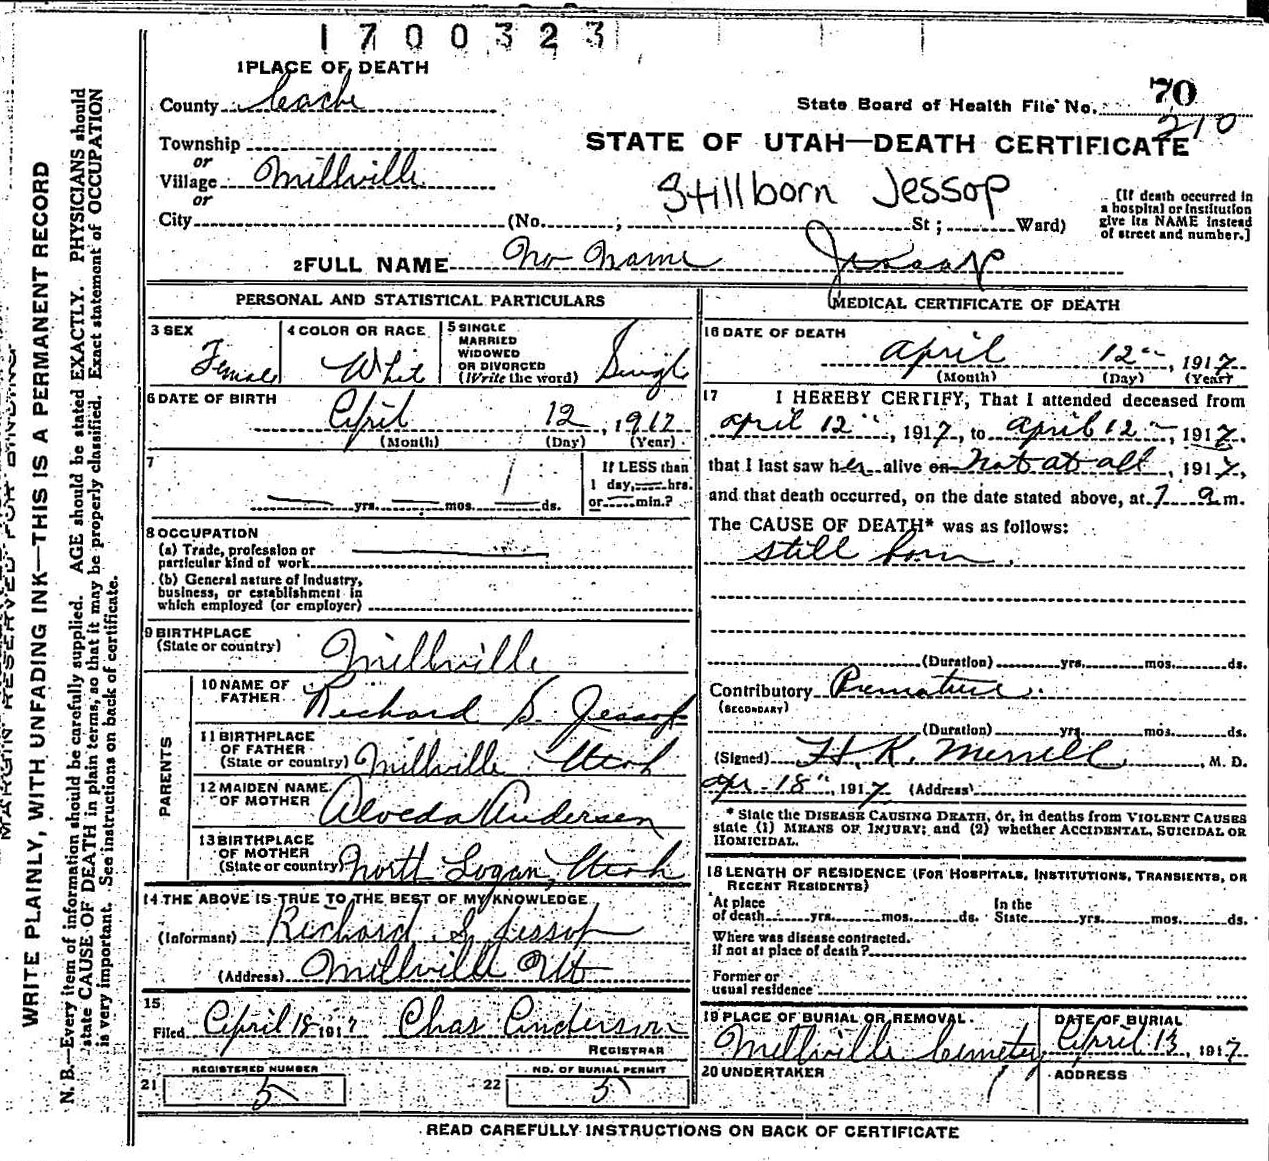 1700323
1 PLACE OF DEATH
County Cache
State Board of Health File No. 70
210
Township
or
Village Millville
or
City (No. , St; Ward)
STATE OF UTAH—DEATH CERTIFICATE
Stillborn Jessop
[If death occurred in
a hospital or institution
give its NAME instead
of street and number.]
2 FULL NAME No Name Jessop
PERSONAL AND STATISTICAL PARTICULARS
3 SEX Female
4 COLOR OR RACE White
5 SINGLE
MARRIED
WIDOWED
OR DIVORCED
(Write the word) Single
6 DATE OF BIRTH
April 12, 1917
(Month) (Day) (Year)
7
yrs. mos. 1 ds.
If LESS than
1 day, hrs.
or min.?
8 OCCUPATION
(a) Trade, profession or
particular kind of work
(b) General nature of Industry,
business, or establishment in
which employed (or employer)
9 BIRTHPLACE
(State or country) Millville
PARENTS
10 NAME OF
FATHER Richard S. Jessop
11 BIRTHPLACE
OF FATHER
(State or country) Millville Utah
12 MAIDEN NAME
OF MOTHER Alveda Andersen
13 BIRTHPLACE
OF MOTHER
(State or country) North Logan, Utah
14 THE ABOVE IS TRUE TO THE BEST OF MY KNOWLEDGE
(Informant) Richard S. Jessop
(Address) Millville Ut
15
Filed April 18 1917 Chas Anderson
REGISTRAR
REGISTERED NUMBER
21 5
NO. OF BURIAL PERMIT
22 5
MEDICAL CERTIFICATE OF DEATH
16 DATE OF DEATH
April 12", 1917
(Month) (Day) (Year)
17 I HEREBY CERTIFY, That I attended deceased from
april 12", 1917, to april 12", 1917.
that I last saw her alive on Not at all, 1917,
and that death occurred, on the date stated above, at 7 a m.
The CAUSE OF DEATH* was as follows:
still born.
(Duration) yrs. mos. ds.
Contributory Premature.
(SECONDARY)
(Duration) yrs. mos. ds.
(Signed) H. K. Merrill, M. D.
Apr-18", 1917 (Address)
* State the DISEASE CAUSING DEATH, or, in deaths from VIOLENT CAUSES
state (1) MEANS OF INJURY; and (2) whether ACCIDENTAL, SUICIDAL OR
HOMICIDAL.
18 LENGTH OF RESIDENCE (FOR HOSPITALS, INSTITUTIONS, TRANSIENTS, OR
RECENT RESIDENTS)
At place
of death yrs. mos. ds.
In the
State yrs. mos. ds.
Where was disease contracted.
if not at place of death?
Former or
usual residence
19 PLACE OF BURIAL OR REMOVAL.
Millville Cemetery
DATE OF BURIAL
April 13, 1917
20 UNDERTAKER
ADDRESS
READ CAREFULLY INSTRUCTIONS ON BACK OF CERTIFICATE
MARGIN RESERVED FOR BINDING.
WRITE PLAINLY, WITH UNFADING INK—THIS IS A PERMANENT RECORD
N. B.—Every item of information should be carefully supplied. AGE should be stated EXACTLY. PHYSICIANS should
state CAUSE OF DEATH in plain terms, so that it may be properly classified. Exact statement of OCCUPATION
is very important. See instructions on back of certificate.